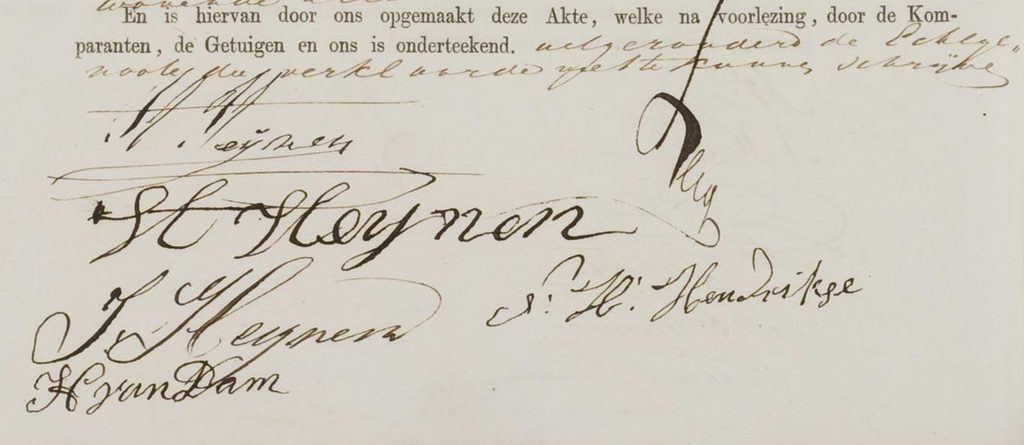 En is hiervan door ons opgemaakt deze Akte, welke na voorlezing, door de Kom-
paranten, de Getuigen en ons is onderteekend. uitgezonderd de Echtge„
noote, die verklaarde niet te kunnen schrijven
H. Heijnen
H Heynen
J. Heynen
J. H. Hendrikse
H van Dam